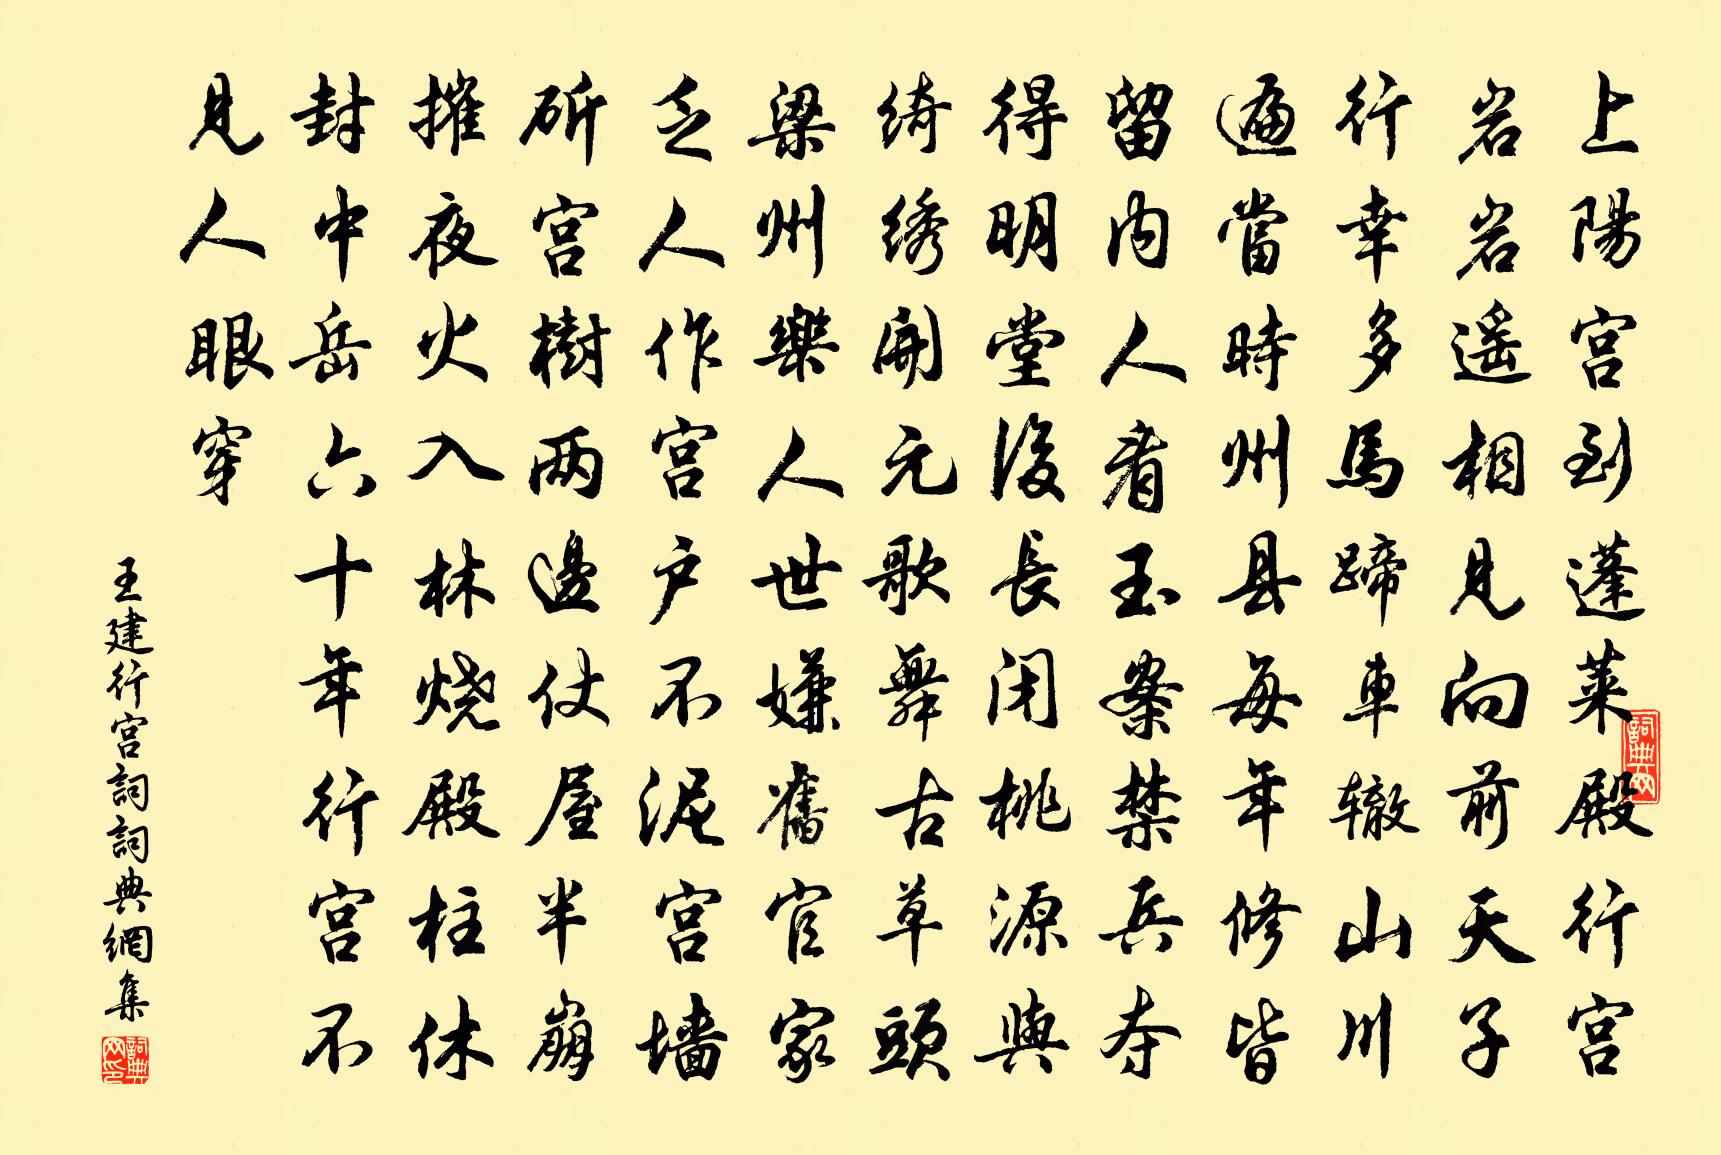 上陽宫到蓬莱殿行宫
岩岩遥相見向前天子
行幸多馬蹄車辙山川
遍當時州县每年修皆
留内人看玉案禁兵夺
得明堂後長闭桃源與
绮绣開元歌舞古草頭
梁州樂人世嫌舊官家
乏人作宫户不泥宫墙
斫宫樹两邊仗屋半崩
摧夜火入林烧殿柱休
封中岳六十年行宫不
見人眼穿
王建行宫詞詞典網集
詞典网
詞典网